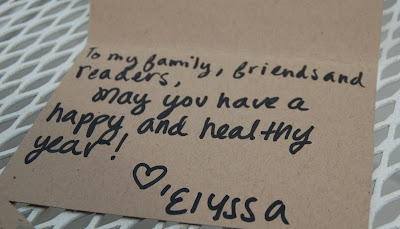 To my family, friends and
readers,
may you have a
happy and healthy
year!
♡, Elyssa